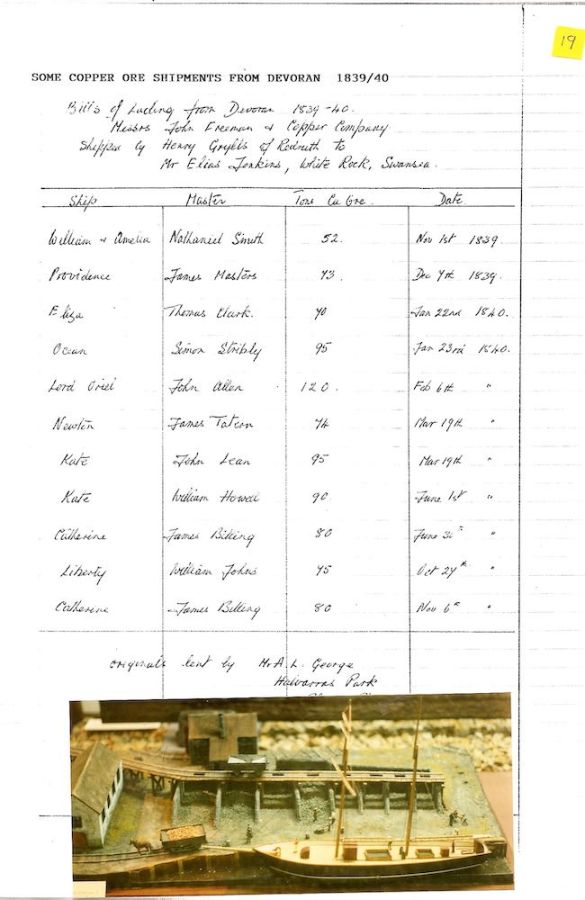 19
SOME COPPER ORE SHIPMENTS FROM DEVORAN 1839/40
Bills of Lading from Devoran 1839-40.
Messrs John Freeman & Copper Company
Shipped by Henry Grylls of Redruth to
Mr Elias Jenkins, White Rock, Swansea.
Ship Master Tons Cu Ore Date
William & Amelia Nathaniel Smith 52. Nov 1st 1839.
Providence James Masters 73. Dec 7th 1839.
Eliza Thomas Clark. 70 Jan 22nd 1840.
Ocean Simon Stribly 95 Jan 23rd 1840.
Lord Oriel John Allen 120. Feb 6th "
Newton James Tatem 74 Mar 19th "
Kate John Lean 95 Mar 19th "
Kate William Howell 90 June 1st "
Catherine James Billing 80 June 30th "
Liberty William Johns 75 Oct 27th "
Catherine James Billing 80 Nov 6th "
originals lent by Mr A. L. George
Halvarras Park